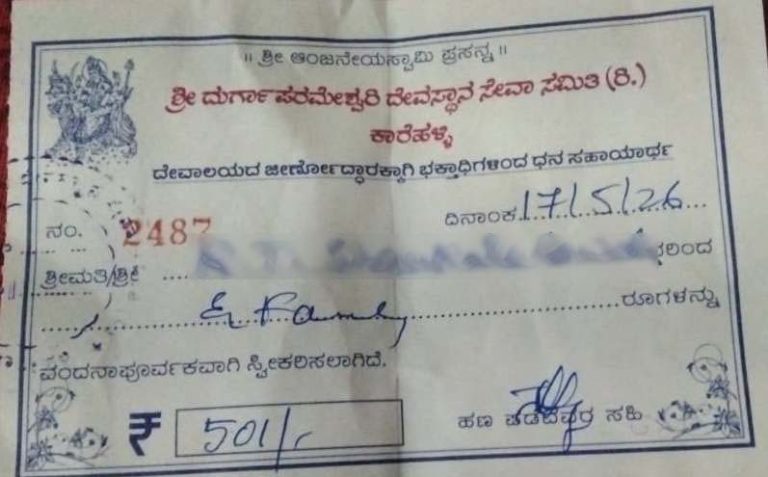 ॥ ಶ್ರೀ ಆಂಜನೇಯಸ್ವಾಮಿ ಪ್ರಸನ್ನ ॥
ಶ್ರೀ ದುರ್ಗಾಪರಮೇಶ್ವರಿ ದೇವಸ್ಥಾನ ಸೇವಾ ಸಮಿತಿ (ರಿ.)
ಕಾರೆಹಳ್ಳಿ
ದೇವಾಲಯದ ಜೀರ್ಣೋದ್ಧಾರಕ್ಕಾಗಿ ಭಕ್ತಾಧಿಗಳಿಂದ ಧನ ಸಹಾಯಾರ್ಥ
ನಂ. 2487 ದಿನಾಂಕ 17/5/26
ಶ್ರೀಮತಿ/ಶ್ರೀ ರಿಂದ
& Family ರೂಗಳನ್ನು
ವಂದನಾಪೂರ್ವಕವಾಗಿ ಸ್ವೀಕರಿಸಲಾಗಿದೆ.
₹ 501/- ಹಣ ಪಡೆದವರ ಸಹಿ